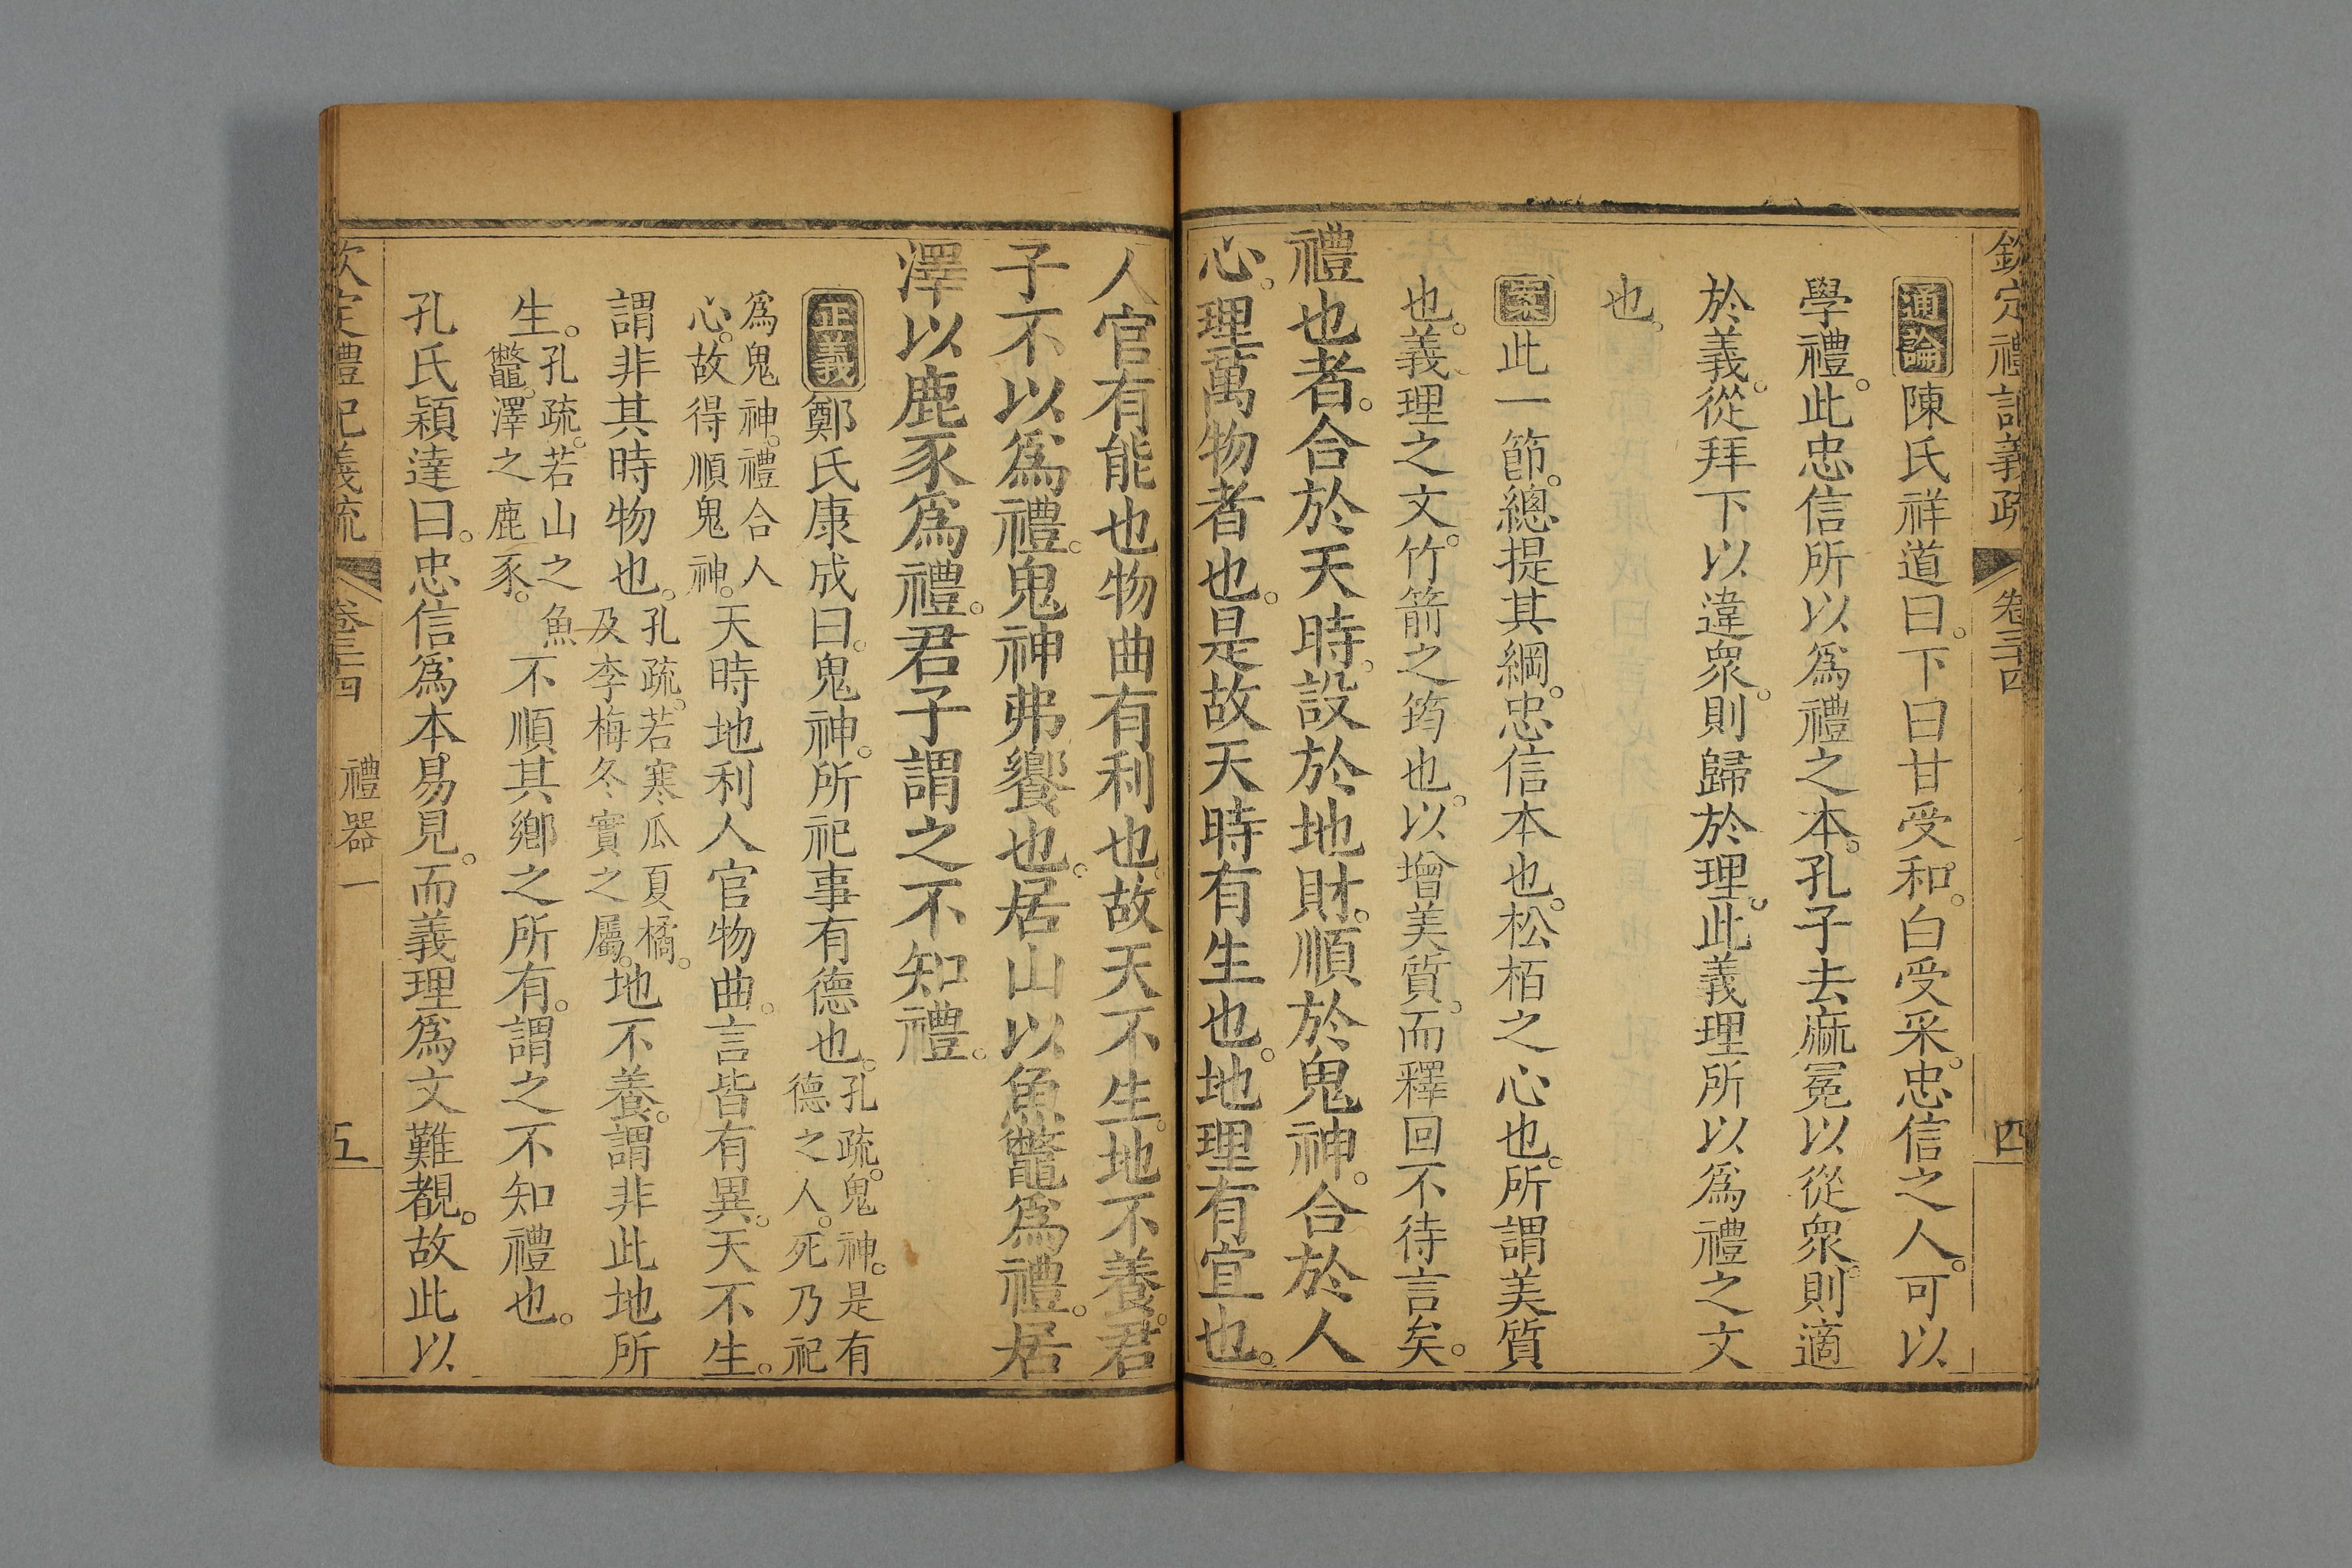 欽定禮記義疏 卷三十四 四
通論陳氏祥道曰。下曰甘受和。白受采。忠信之人。可以
學禮。此忠信所以爲禮之本。孔子去麻冕以從衆。則適
於義。從拜下以違衆。則歸於理。此義理所以爲禮之文
也。
案此一節。總提其綱。忠信本也。松栢之心也。所謂美質
也。義理之文。竹箭之筠也。以增美質。而釋回不待言矣。
禮也者。合於天時。設於地財。順於鬼神。合於人
心。理萬物者也。是故天時有生也。地理有宜也。
人官有能也物曲有利也。故天不生。地不養。君
子不以爲禮。鬼神弗饗也。居山以魚鼈爲禮。居
澤以鹿豕爲禮。君子謂之不知禮。
正義鄭氏康成曰。鬼神。所祀事有德也。孔疏。鬼神。是有
德之人。死乃祀
爲鬼神。禮合人
心。故得順鬼神。天時地利人官物曲。言皆有異。天不生。
謂非其時物也。孔疏。若寒瓜夏橘。
及李梅冬實之屬。地不養。謂非此地所
生。孔疏。若山之魚
鼈。澤之鹿豕。不順其鄉之所有。謂之不知禮也。
孔氏穎達曰。忠信爲本。易見。而義理爲文難覩。故此以
欽定禮記義疏 卷三十四 禮器一 五